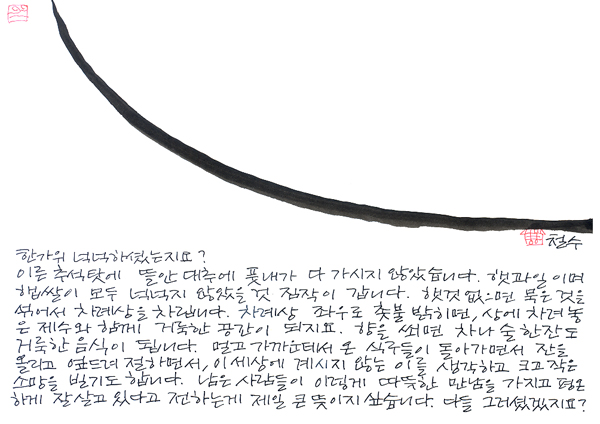 철수
한가위 넉넉하셨는지요?
이른 추석탓에 뜰안 대추에 풋내가 다 가시지 않았습니다. 햇과일이며
햅쌀이 모두 넉넉지 않았을 것 짐작이 갑니다. 햇것 없으면 묵은 것을
섞어서 차례상을 차립니다. 차례상 좌우로 촛불 밝히면, 상에 차려 놓
은 제수와 함께 거룩한 공간이 되지요. 향을 쐬면 차나 술 한잔도
거룩한 음식이 됩니다. 멀고 가까운데서 온 식구들이 돌아가면서 잔을
올리고 엎드려 절하면서, 이 세상에 계시지 않는 이를 생각하고 크고 작은
소망을 빌기도 합니다. 남은 사람들이 이렇게 따뜻한 만남을 가지고 평온
하게 잘 살고 있다고 전하는게 제일 큰 뜻이지 싶습니다. 다들 그러셨겠지요?